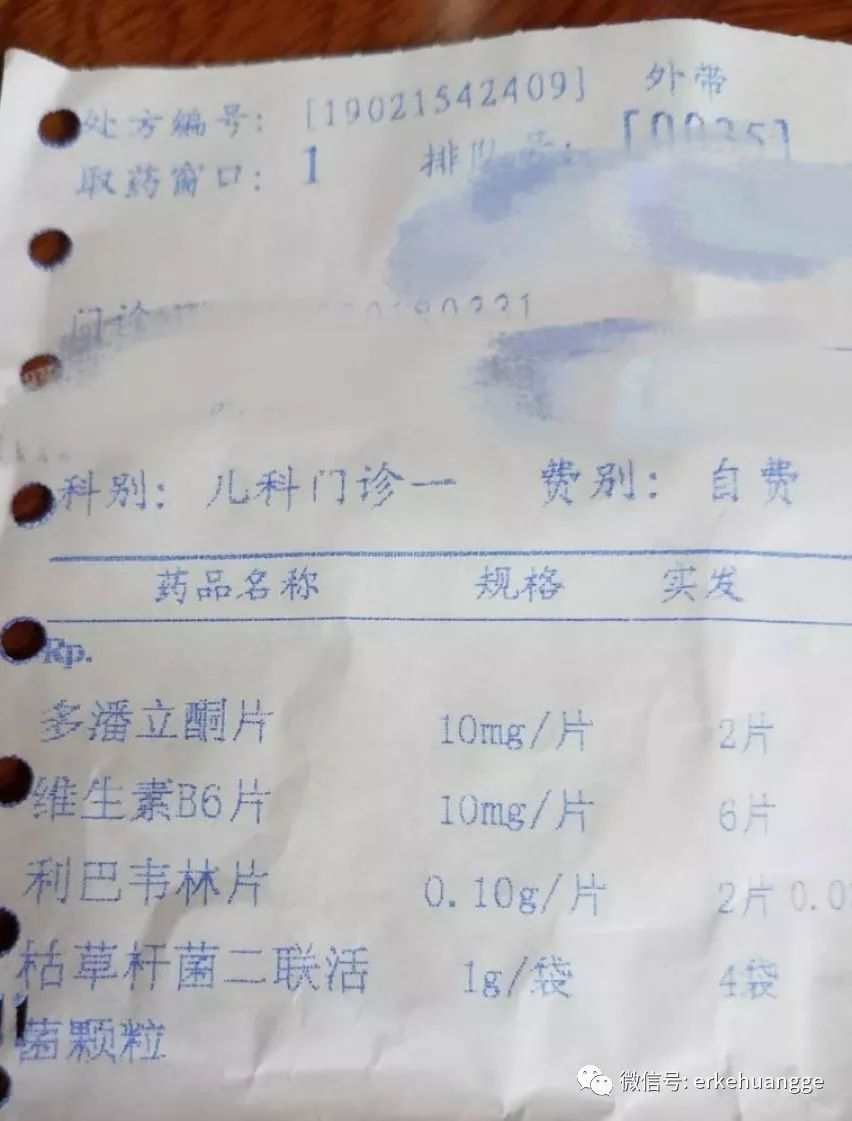 处方编号: [19021542409] 外带
取药窗口: 1 排队号: [0035]
门诊
科别: 儿科门诊一 费别: 自费
药品名称 规格 实发
Rp.
多潘立酮片 10mg/片 2片
维生素B6片 10mg/片 6片
利巴韦林片 0.10g/片 2片 0.0
枯草杆菌二联活 1g/袋 4袋
菌颗粒
微信号: erkehuangge